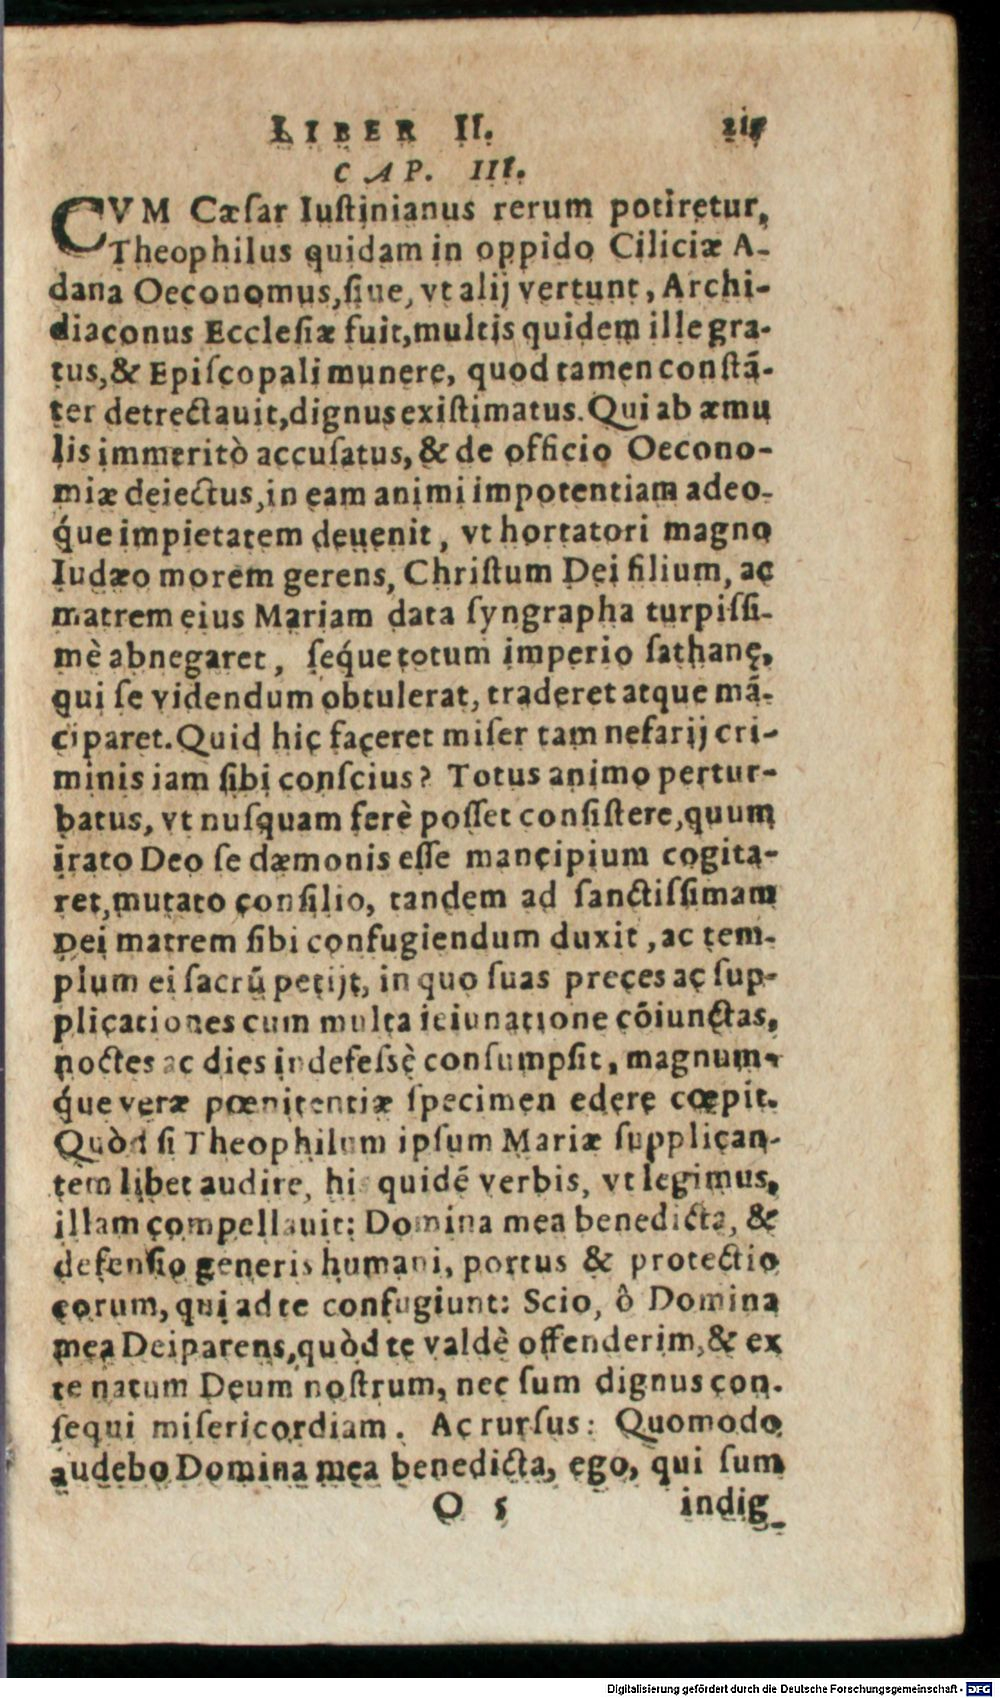 LIBER II.
CAP. III.
CVM Cæſar Iuſtinianus rerum potiretur,
Theophilus quidam in oppido Ciliciæ A-
dana Oeconomus, ſiue, vt alij vertunt, Archi-
diaconus Eccleſiæ fuit, multis quidem ille gra-
tus, & Epiſcopali munere, quod tamen conſtā-
ter detrectauit, dignus exiſtimatus. Qui ab æmu
lis immeritò accuſatus, & de officio Oecono-
miæ deiectus, in eam animi impotentiam adeo-
q́ue impietatem deuenit, vt hortatori magno
Iudæo morem gerens, Chriſtum Dei filium, ac
matrem eius Mariam data ſyngrapha turpiſſi-
mè abnegaret, ſeq́ue totum imperio ſathanę,
qui ſe videndum obtulerat, traderet atque mā-
ciparet. Quid hic faceret miſer tam nefarij cri-
minis iam ſibi conſcius? Totus animo pertur-
batus, vt nuſquam ferè poſſet conſiſtere, quum
irato Deo ſe dæmonis eſſe mancipium cogita-
ret, mutato conſilio, tandem ad ſanctiſſimam
Dei matrem ſibi confugiendum duxit, ac tem-
plum ei ſacrū petijt, in quo ſuas preces ac ſup-
plicationes cum multa ieiunatione cōiunctas,
noctes ac dies indefeſsè conſumpſit, magnum-
q́ue veræ pœnitentiæ ſpecimen edere cœpit.
Quòd ſi Theophilum ipſum Mariæ ſupplican-
tem libet audire, his quidē verbis, vt legimus,
illam compellauit: Domina mea benedicta, &
defenſio generis humani, portus & protectio
eorum, qui ad te confugiunt: Scio, ô Domina
mea Deiparens, quòd te valdè offenderim, & ex
te natum Deum noſtrum, nec ſum dignus con-
ſequi miſericordiam. Ac rurſus: Quomodo
audebo Domina mea benedicta, ego, qui ſum
O 5 indig-
Digitalisierung gefördert durch die Deutsche Forschungsgemeinschaft - DFG